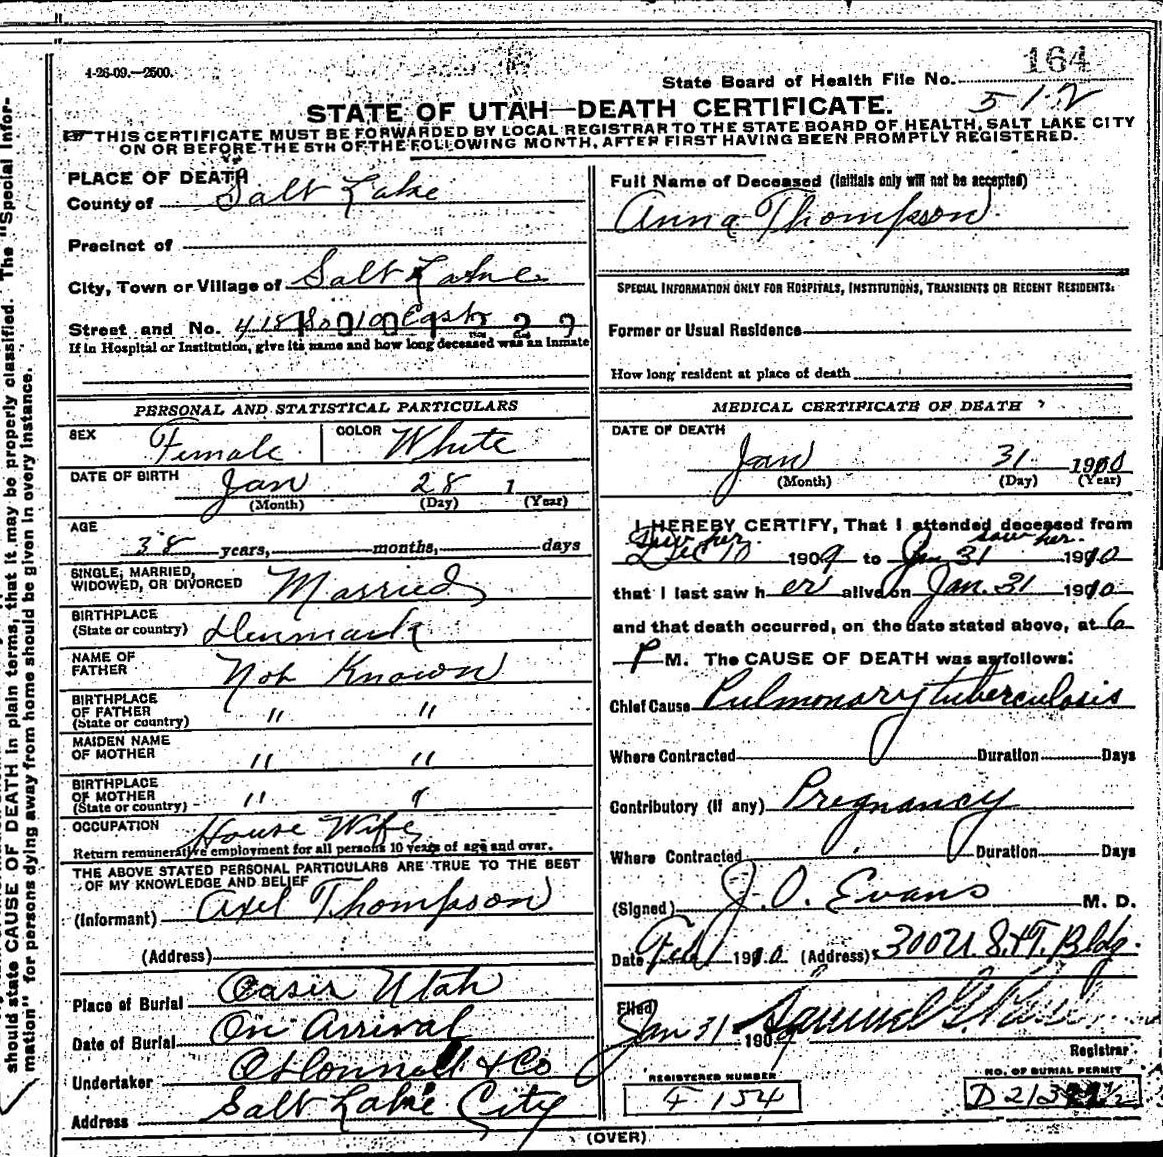 4-26-09.—2500.
164
State Board of Health File No.
512
STATE OF UTAH—DEATH CERTIFICATE.
THIS CERTIFICATE MUST BE FORWARDED BY LOCAL REGISTRAR TO THE STATE BOARD OF HEALTH, SALT LAKE CITY
ON OR BEFORE THE 5TH OF THE FOLLOWING MONTH, AFTER FIRST HAVING BEEN PROMPTLY REGISTERED.
should state CAUSE OF DEATH in plain terms, that it may be properly classified. The "Special Infor-
mation" for persons dying away from home should be given in every instance.
PLACE OF DEATH
County of Salt Lake
Precinct of
City, Town or Village of Salt Lake
Street and No. 418 So 10 East
If in Hospital or Institution, give its name and how long deceased was an Inmate
PERSONAL AND STATISTICAL PARTICULARS
SEX Female COLOR White
DATE OF BIRTH Jan 28 1
(Month) (Day) (Year)
AGE
38 years, months, days
SINGLE, MARRIED,
WIDOWED, OR DIVORCED Married
BIRTHPLACE
(State or country) Denmark
NAME OF
FATHER Not Known
BIRTHPLACE
OF FATHER
(State or country) " "
MAIDEN NAME
OF MOTHER " "
BIRTHPLACE
OF MOTHER
(State or country) " "
OCCUPATION House Wife
Return remunerative employment for all persons 10 years of age and over.
THE ABOVE STATED PERSONAL PARTICULARS ARE TRUE TO THE BEST
OF MY KNOWLEDGE AND BELIEF
(Informant) Axel Thompson
(Address)
Place of Burial Oasis Utah
Date of Burial On Arrival
Undertaker O'Donnell & Co
Address Salt Lake City
Full Name of Deceased (Initials only will not be accepted)
Anna Thompson
SPECIAL INFORMATION ONLY FOR HOSPITALS, INSTITUTIONS, TRANSIENTS OR RECENT RESIDENTS.
Former or Usual Residence
How long resident at place of death
MEDICAL CERTIFICATE OF DEATH
DATE OF DEATH
Jan 31 1910
(Month) (Day) (Year)
I HEREBY CERTIFY, That I attended deceased from
Saw her saw her.
Dec 10 1909 to Jan 31 1910
that I last saw her alive on Jan. 31 1910
and that death occurred, on the date stated above, at 6
P M. The CAUSE OF DEATH was as follows:
Chief Cause Pulmonary tuberculosis
Where Contracted Duration Days
Contributory (if any) Pregnancy
Where Contracted Duration Days
(Signed) J. O. Evans M. D.
Date Feb 1 1910 (Address) 300 U.S.&T. Bldg.
Filed
Jan 31 1909 Samuel G.
Registrar
REGISTERED NUMBER
F 154
NO. OF BURIAL PERMIT
(OVER)